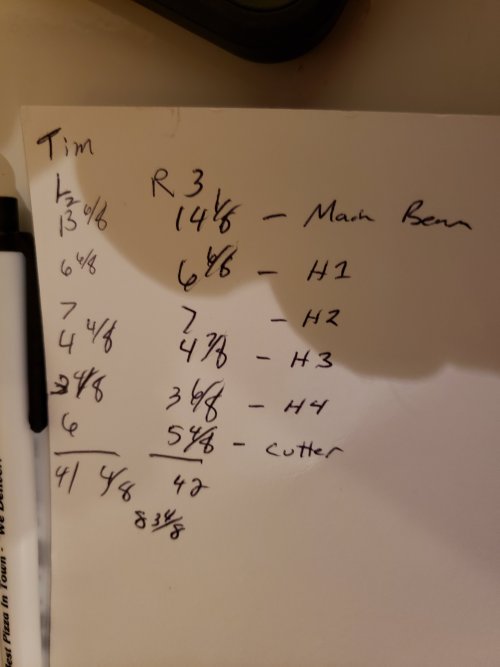 Tim
L R 3
13 6/8 14 1/8 - Main Beam
6 4/8 6 6/8 - H1
7 7 - H2
4 4/8 4 7/8 - H3
3 4/8 3 6/8 - H4
6 5 4/8 - cutter
41 4/8 42
83 4/8
est Pizza In Town - We Deliver